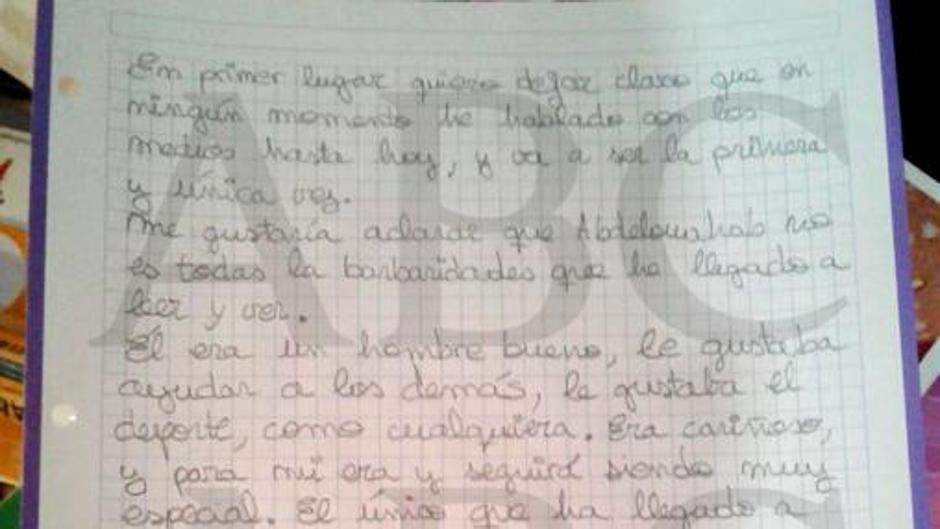 En primer lugar quiero dejar claro que en
ningún momento he hablado con los
medios hasta hoy, y va a ser la primera
y única vez.
Me gustaría aclarar que Abdelouahab no
es todas la barbaridades que he llegado a
leer y ver.
El era un hombre bueno, le gustaba
ayudar a los demás, le gustaba el
deporte, como cualquiera. Era cariñoso,
y para mi era y seguirá siendo muy
especial. El único que ha llegado a
ABC
ABC